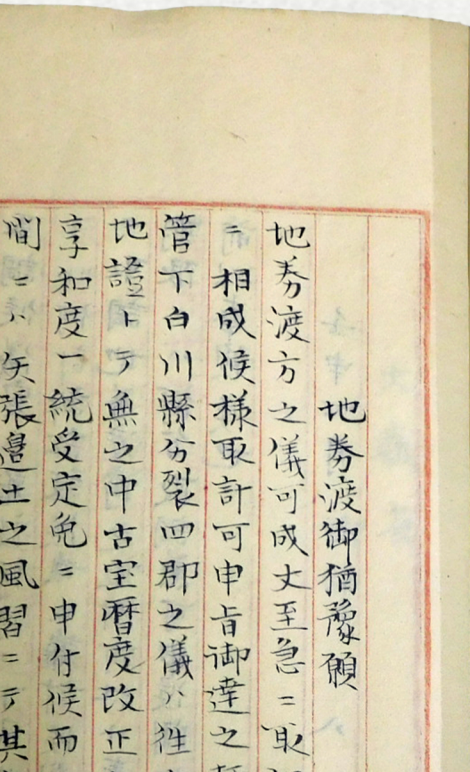 地劵渡御猶豫願
地劵渡方之儀可成丈至急ニ取
ニ相成候樣取計可申旨御達之
管下白川縣分裂四郡之儀ハ徃
地證トテ無之中古宝暦度改正
享和度一統受定免ニ申付候而
間ニハ矢張邉土之風習ニテ其